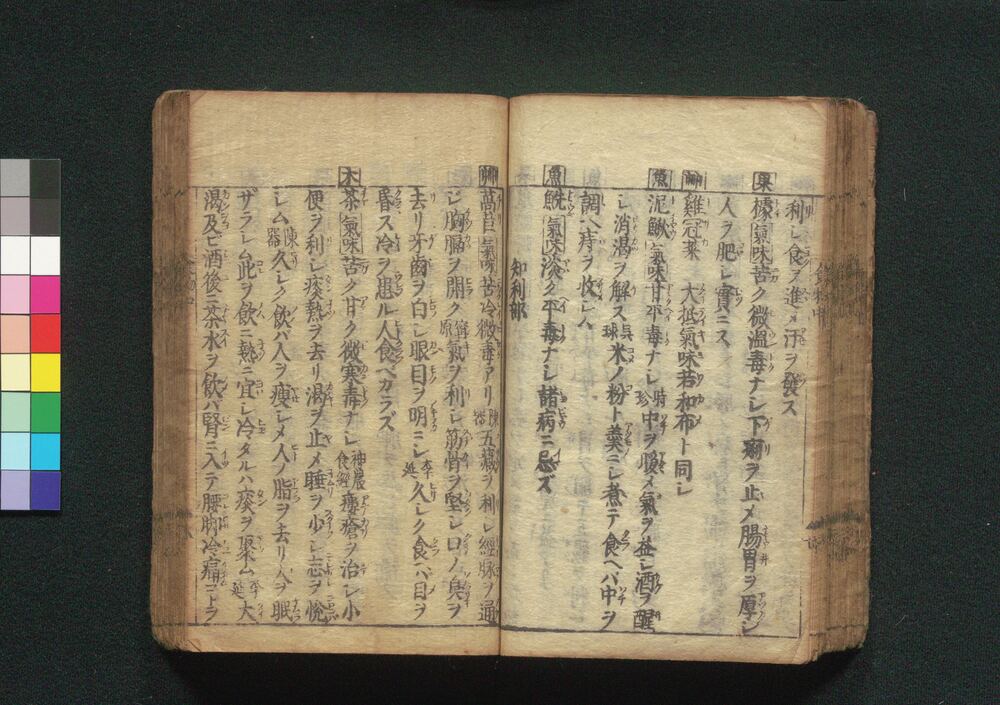 利シ食ヲ進メ汗ヲ發ス
菓 㯉 氣味苦ク微溫毒ナシ下痢ヲ止メ腸胃ヲ厚シ
人ヲ肥シ實ニス
艸 雞冠菜 大抵氣味若和布ト同シ
魚 泥鰌 氣味甘平毒ナシ 時珍 中ヲ暖メ氣ヲ益シ酒ヲ醒
シ消渇ヲ解ス 呉球 米ノ粉ト羹ニシ煮テ食ヘバ中ヲ
調ヘ痔ヲ收ム
魚 鮠 氣味淡ク平毒ナシ諸病ニ忌ズ
知利部
艸 萵苣 氣味苦冷微毒アリ 五藏ヲ利シ經脉ヲ通
シ胸膈ヲ開ク 甯原 氣ヲ利シ筋骨ヲ堅シ口ノ臭ヲ
去リ牙齒ヲ白シ眼目ヲ明ニシ 久シク食ヘバ目ヲ
昏ス冷ヲ患ル人食ベカラズ
木 茶 氣味苦ク甘ク微寒毒ナシ 神農食經 瘻瘡ヲ治シ小
便ヲ利シ痰熱ヲ去リ渇ヲ止メ睡ヲ少シ志ヲ悅
シム 陳藏器 久シク飮バ人ヲ瘦シメ人ノ脂ヲ去リ人ヲ眠
ザラシム此ヲ飮ニ熱ニ宜シ冷タルハ痰ヲ聚ム 大
渇及ビ酒後ニ茶水ヲ飮バ腎ニ入テ腰脚冷痛ミトラ